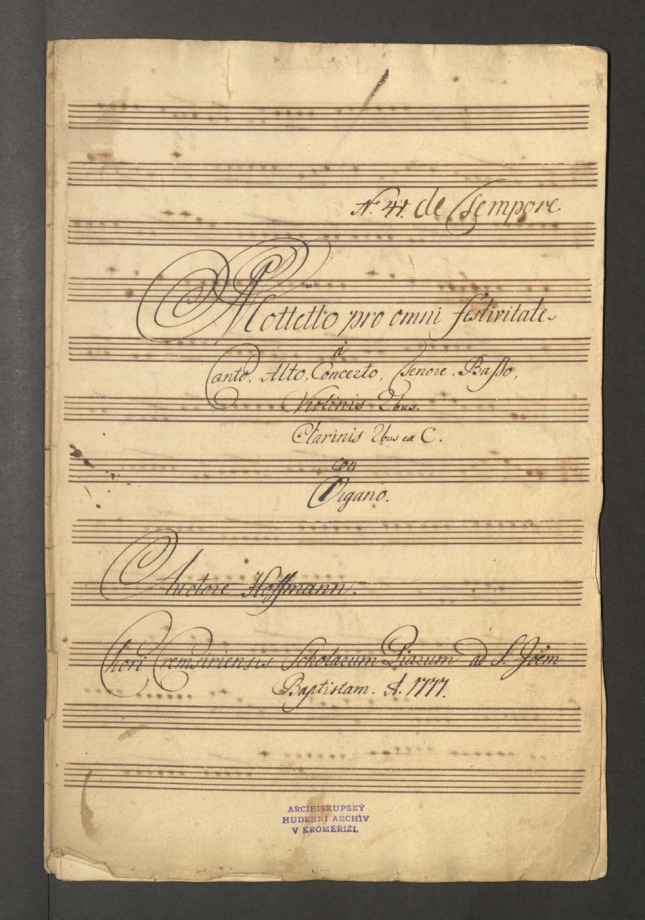 N. 41. de Tempore
Mottetto pro omni festivitate
à
Canto, Alto, Concerto, Tenore, Basso,
Violinis 2bus.
Clarinis 2bus ex C.
con
Organo.
Auctore Hoffmann.
Chori Cremsiriensis Scholarum Piarum ad S. Joëm
Baptistam. A. 1777.
ARCIBISKUPSKÝ
HUDEBNÍ ARCHIV
V KROMĚŘÍŽI.